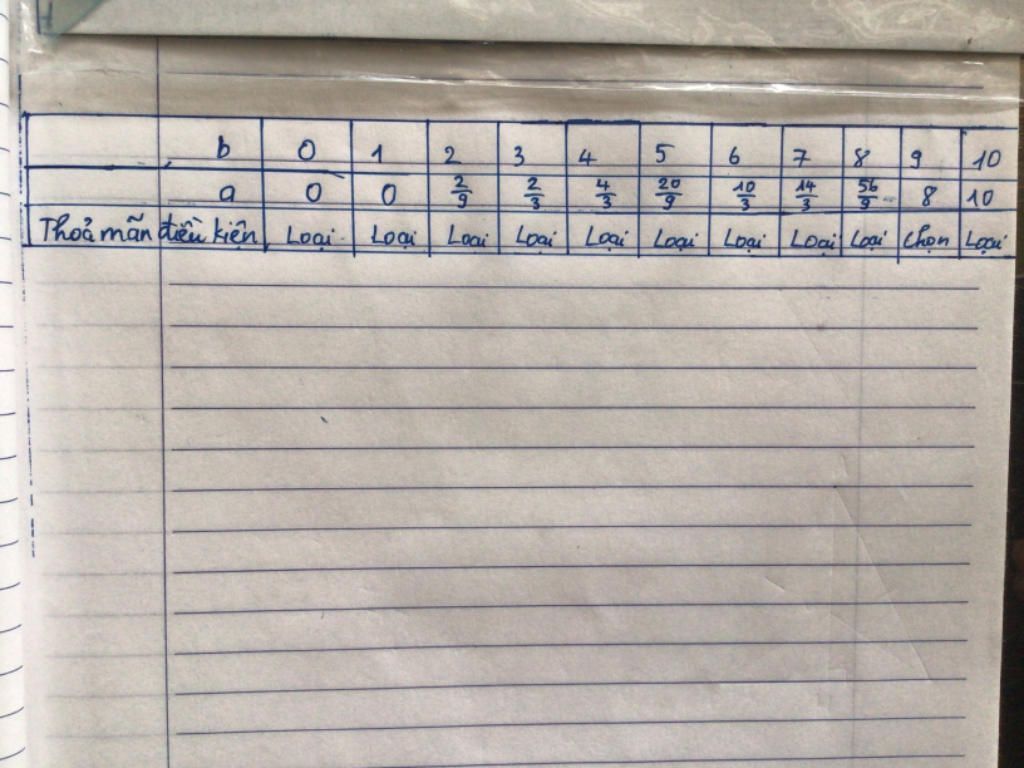 b 0 1 2 3 4 5 6 7 8 9 10
a 0 0 2/9 2/3 4/3 20/9 10/3 14/3 56/9 8 10
Thoả mãn điều kiện Loại Loại Loại Loại Loại Loại Loại Loại Loại Chọn Loại